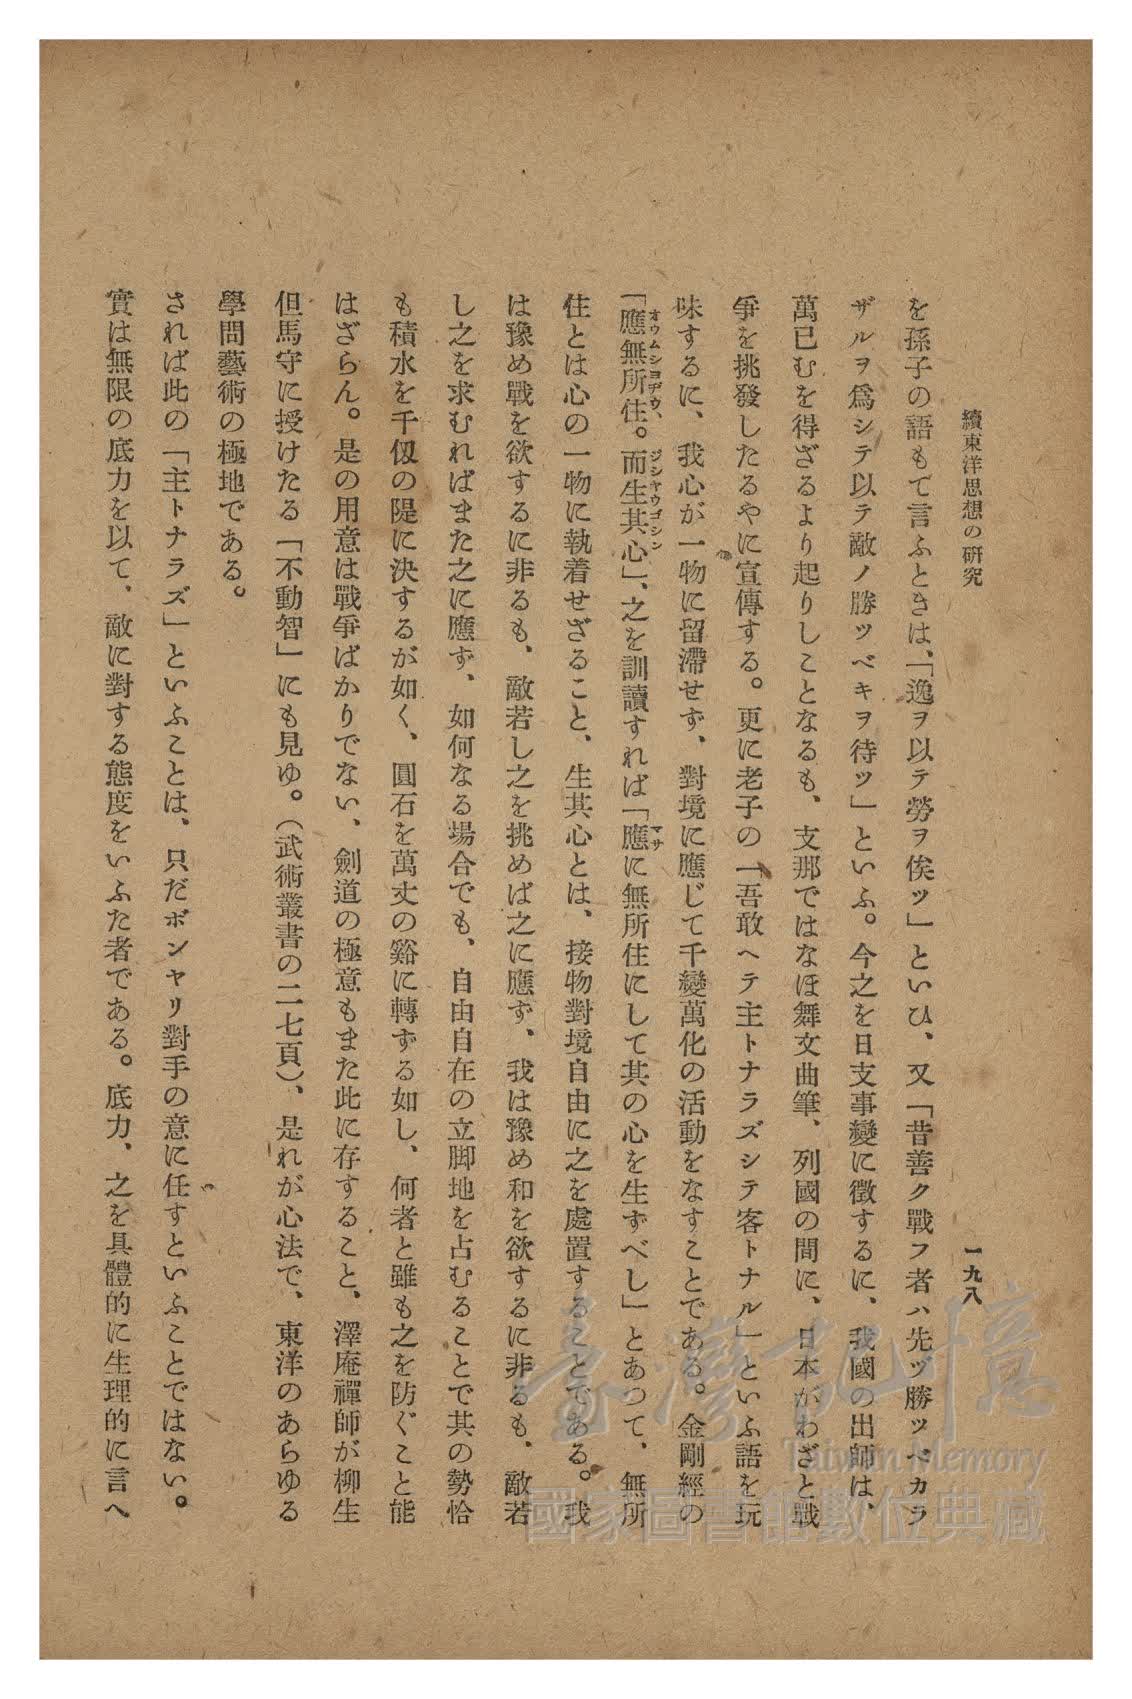 續東洋思想の硏究
一九八
を孫子の語もて言ふときは、「逸ヲ以テ勞ヲ俟ツ」といひ、又「昔善ク戰フ者ハ先ヅ勝ツベカラ
ザルヲ爲シテ以テ敵ノ勝ツベキヲ待ツ」といふ。今之を日支事變に徵するに、我國の出師は、
萬已むを得ざるより起りしことなるも、支那ではなほ舞文曲筆、列國の間に、日本がわざと戰
爭を挑發したるやに宣傳する。更に老子の「吾敢ヘテ主トナラズシテ客トナル」といふ語を玩
味するに、我心が一物に留滯せず、對境に應じて千變萬化の活動をなすことである。金剛經の
「應無所住。而生其心」、之を訓讀すれば「應に無所住にして其の心を生ずべし」とあつて、無所
オウムシヨヂウ、ジシヤウゴシン
マサ
住とは心の一物に執着せざること、生其心とは、接物對境自由に之を處置することである。我
は豫め戰を欲するに非るも、敵若し之を挑めば之に應ず、我は豫め和を欲するに非るも、敵若
し之を求むればまた之に應ず、如何なる場合でも、自由自在の立脚地を占むることで其の勢恰
も積水を千仭の隄に決するが如く、圓石を萬丈の谿に轉ずる如し、何者と雖も之を防ぐこと能
はざらん。是の用意は戰爭ばかりでない、劍道の極意もまた此に存すること、澤庵禪師が柳生
但馬守に授けたる「不動智」にも見ゆ。（武術叢書の二七頁）、是れが心法で、東洋のあらゆる
學問藝術の極地である。
されば此の「主トナラズ」といふことは、只だボンヤリ對手の意に任すといふことではない。
實は無限の底力を以て、敵に對する態度をいふた者である。底力、之を具體的に生理的に言へ
臺灣記憶
Taiwan Memory
國家圖書館數位典藏